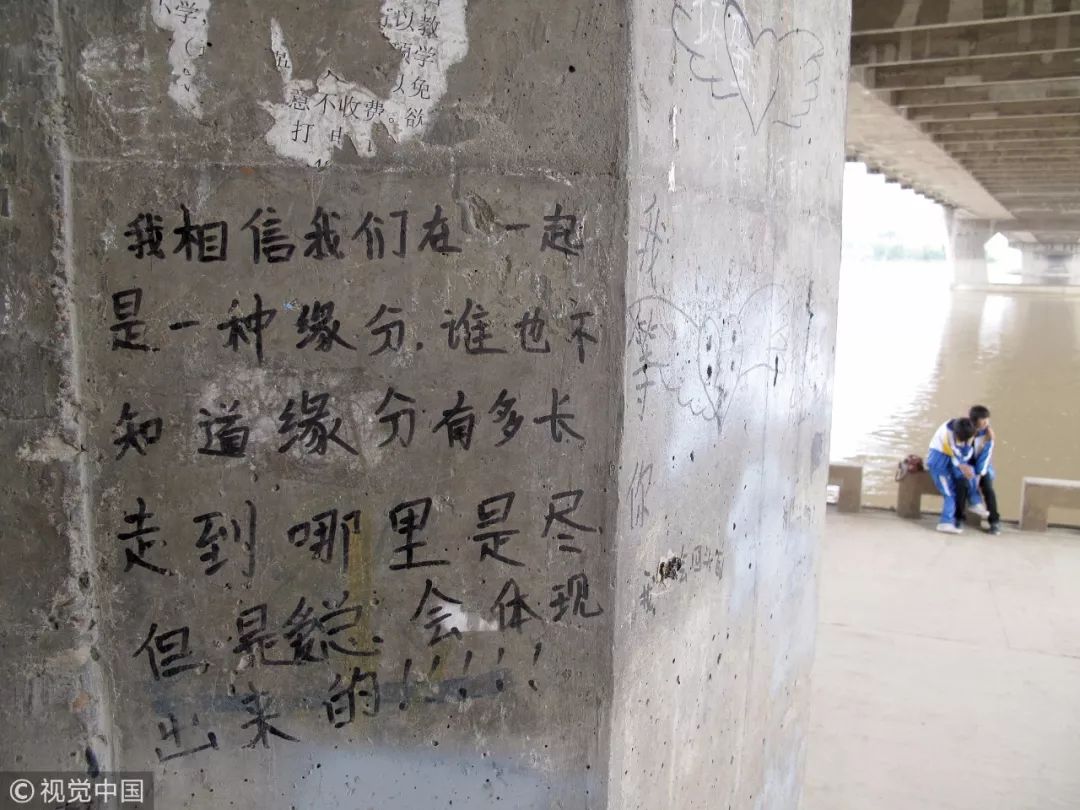 以教
学
意不收费。
免欲
打
我相信我们在一起
是一种缘分.谁也不
知道缘分有多长
走到哪里是尽
但是总会体现
出来的!!!!!
我
等
你
我会回来的
© 视觉中国